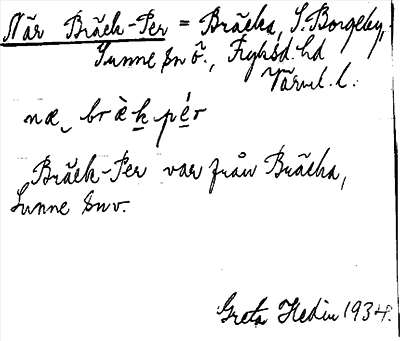 När Bräck-Per = Bräcka, S. Borgeby,
Sunne sn ö., Fryksd. hd
Värml. l.
næ brè̀k pér
Bräck-Per var från Bräcka,
Sunne sn v.
Greta Hedin 1934.